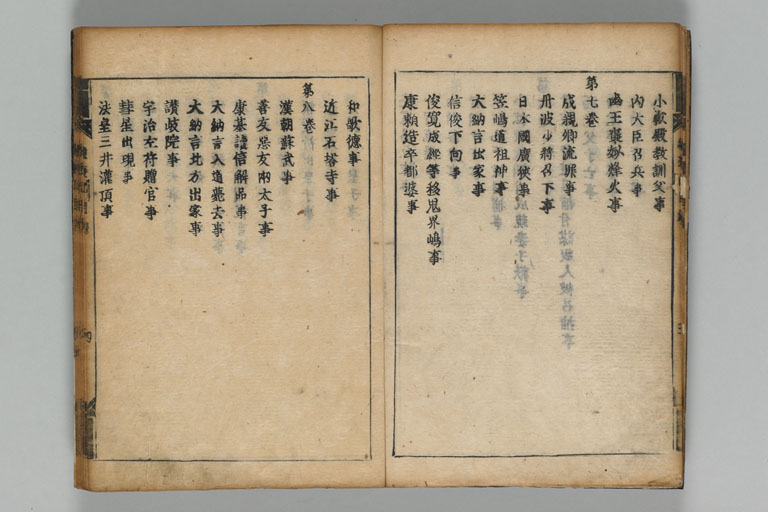 小教訓父事
内大臣召兵事
幽王褒姒烽火事
第七巻
成親卿流罪事
丹波少將召下事
日本國廣狭事
笠嶋道祖神事
大納言出家事
信俊下向事
俊寛成經等移鬼界嶋事
康頼造卒都婆事
和歌德事
近江石塔寺事
第八巻
漢朝蘇武事
善友惡友兩太子事
康基讀信解品事
大納言入道薨去事
大納言北方出家事
讃岐院事
宇治左府贈官事
彗星出現事
法皇三井灌頂事